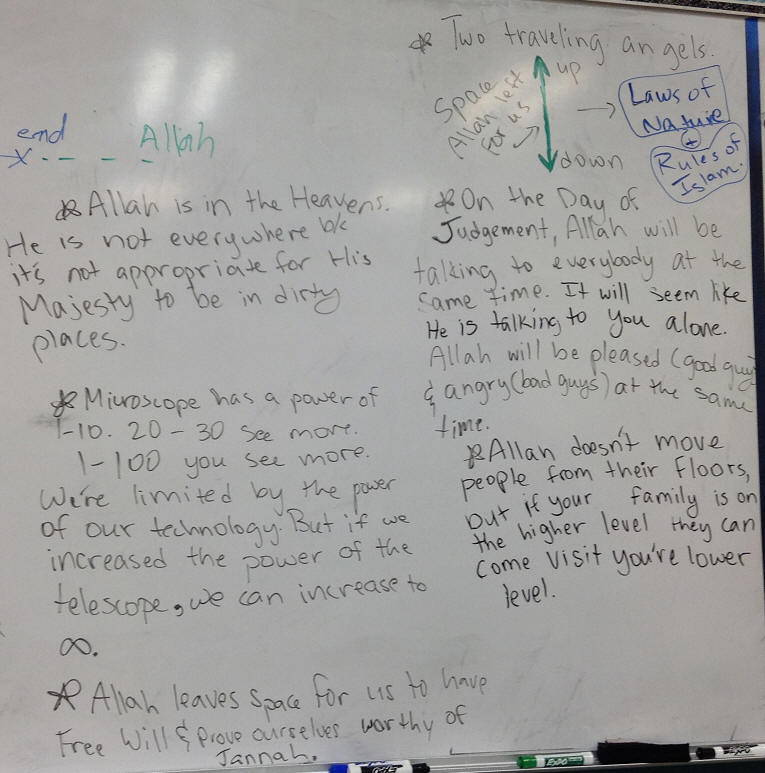 end
x - - - - Allah
* Allah is in the Heavens.
He is not everywhere b/c
it's not appropriate for His
Majesty to be in dirty
places.
* Microscope has a power of
1-10. 20-30 see more.
1-100 you see more.
We're limited by the power
of our technology. But if we
increased the power of the
telescope, we can increase to
∞.
* Allah leaves space for us to have
Free Will & prove ourselves worthy of
Jannah.
* Two traveling angels.
up
Space
Allah left
for us
down
Laws of
Nature
+
Rules of
Islam.
* On the Day of
Judgement, Allah will be
talking to everybody at the
same time. It will seem like
He is talking to you alone.
Allah will be pleased (good guy)
& angry (bad guys) at the same
time.
* Allah doesn't move
people from their floors,
but if your family is on
the higher level they can
come visit you're lower
level.
EXPO
EXPO